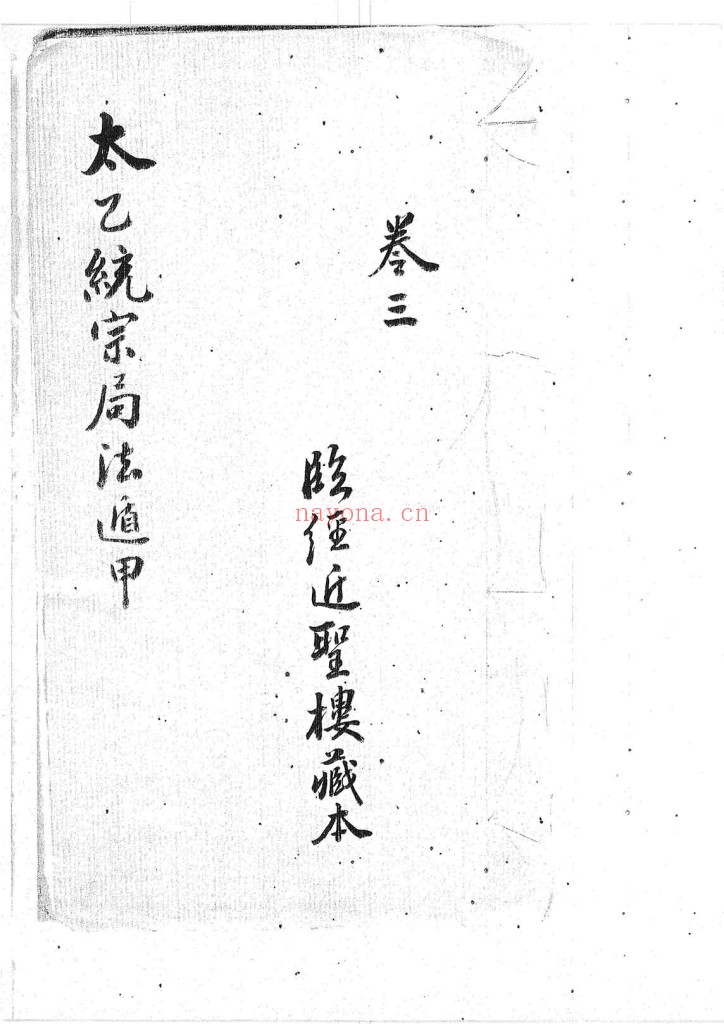 卷三
臨經近聖樓藏本
太乙統宗局法遁甲
nayona.cn